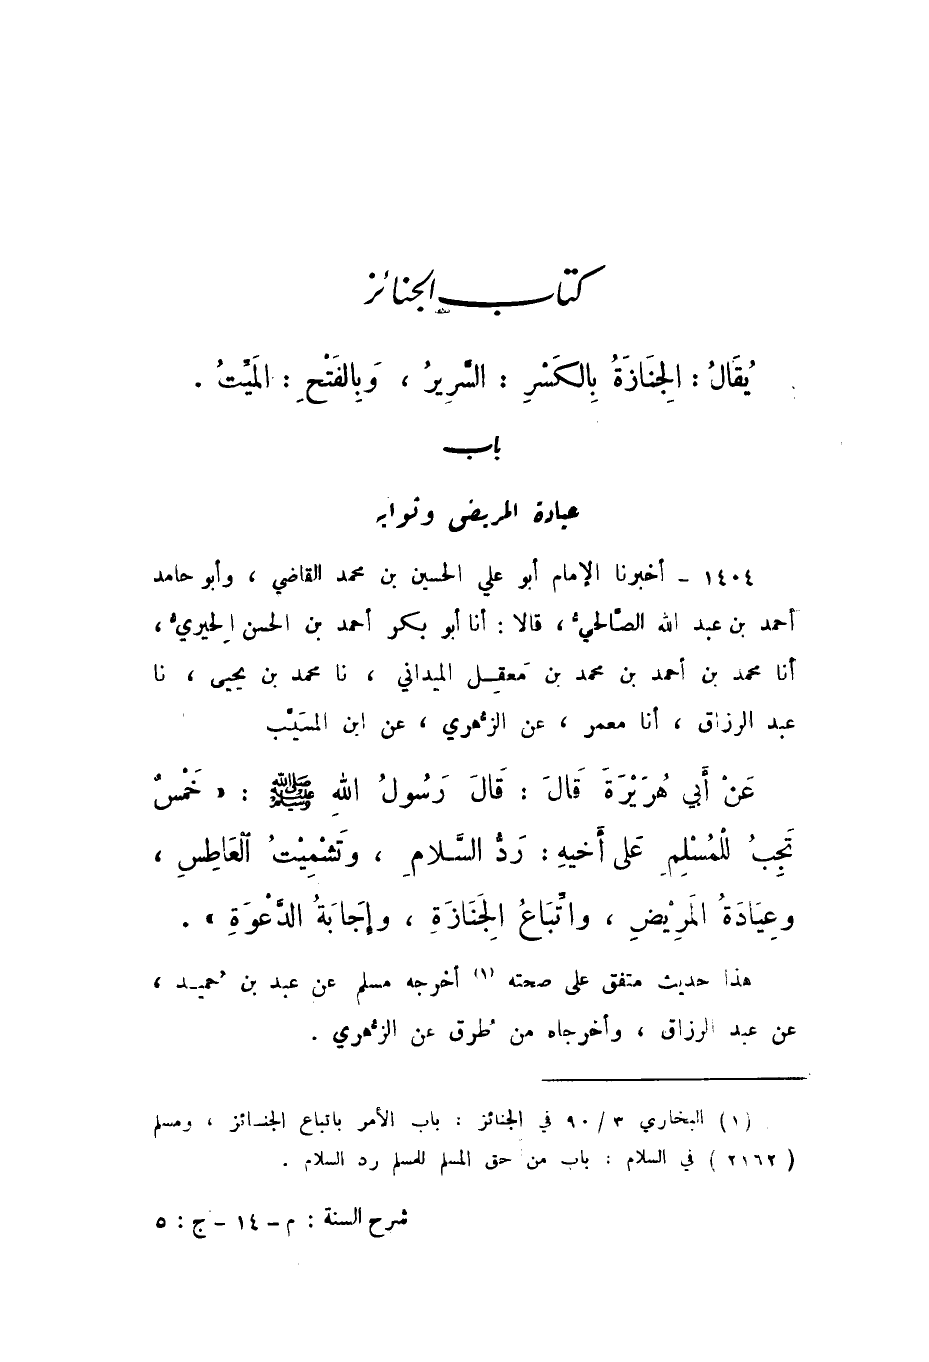 كتاب الجنائز
يُقَالُ : الجِنَازَةُ بِالكَسْرِ : السَّرِيرُ ، وَبِالفَتْحِ : المَيِّتُ .
باب
عيادة المريض وثوابه
١٤٠٤ - أخبرنا الإمام أبو علي الحسين بن محمد القاضي ، وأبو حامد
أحمد بن عبد الله الصّالحيُّ ، قالا : أنا أبو بكر أحمد بن الحسن الحِيريُّ ،
أنا محمد بن أحمد بن محمد بن مَعقِل الميداني ، نا محمد بن يحيى ، نا
عبد الرزاق ، أنا معمر ، عن الزُّهري ، عن ابن المسَيِّب
عَنْ أَبي هُرَيْرَةَ قَالَ : قَالَ رَسُولُ اللهِ ﷺ : « خَمْسٌ
تَجِبُ لِلْمُسْلِمِ عَلى أَخيهِ : رَدُّ السَّلامِ ، وَتَشْمِيْتُ ٱلْعَاطِسِ ،
وعِيَادَةُ المَرِيْضِ ، واتِّبَاعُ الجَنَازَةِ ، وإِجَابَةُ الدَّعْوَةِ » .
هذا حديث متفق على صحته (١) أخرجه مسلم عن عبد بن حُميد ،
عن عبد الرزاق ، وأخرجاه من طُرق عن الزُّهري .
(١) البخاري ٣ / ٩٠ في الجنائز : باب الأمر باتباع الجنائز ، ومسلم
( ٢١٦٢ ) في السلام : باب من حق المسلم للمسلم رد السلام .
شرح السنة : م - ١٤ - ج : ٥